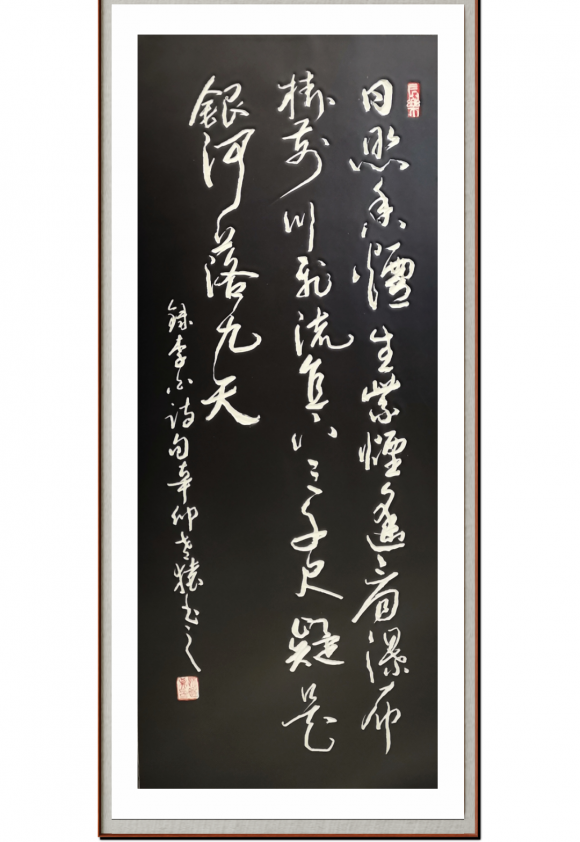 日照香爐生紫煙遥看瀑布
掛前川飛流直下三千尺疑是
銀河落九天
錄李白詩句辛卯老猿書之